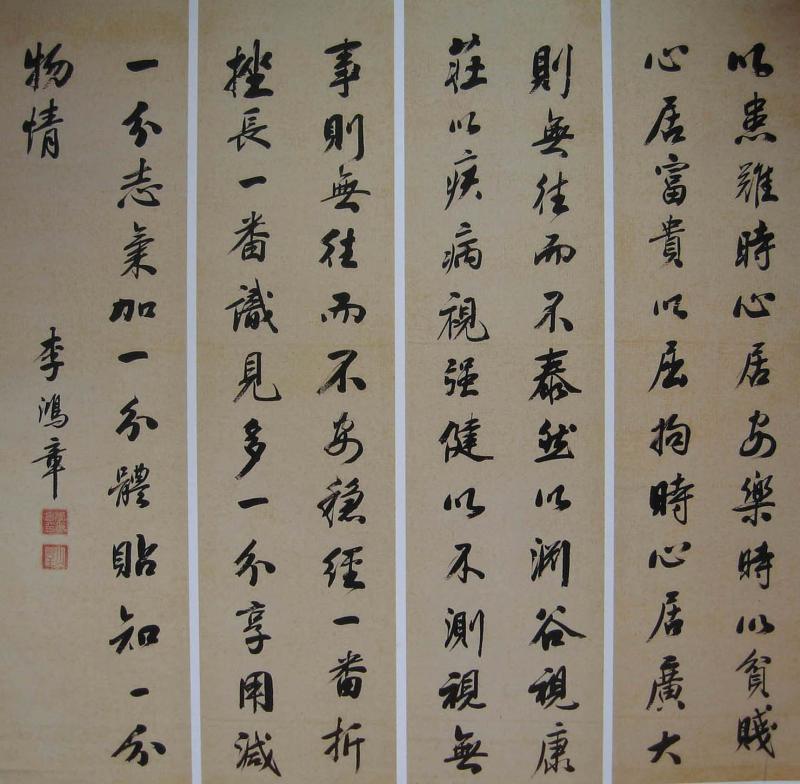 以患難時心居安樂時以貧賤
心居富貴以屈拘時心居廣大
則無往而不泰然以淵谷視康
莊以疾病視强健以不測視無
事則無往而不安穩經一番折
挫長一番識見多一分享用減
一分志氣加一分體貼知一分
物情
李鴻章